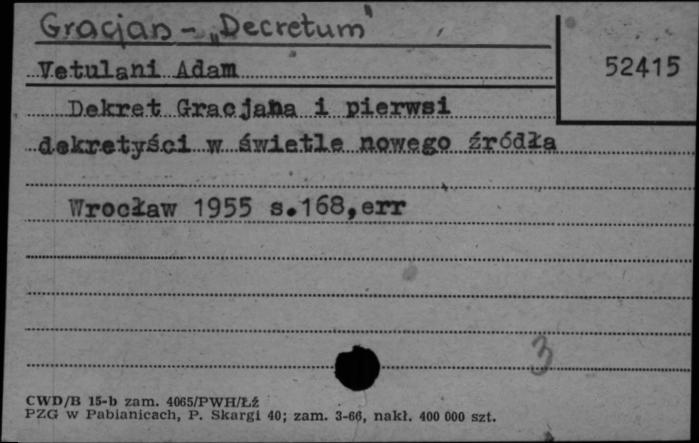 Gracjan - „Decretum"
52415
Vetulani Adam
Dekret Gracjana i pierwsi
dekretyści w świetle nowego źródła
Wrocław 1955 s.168,err
3
CWD/B 15-b zam. 4065/PWH/Łź
PZG w Pabianicach, P. Skargi 40; zam. 3-66, nakł. 400 000 szt.